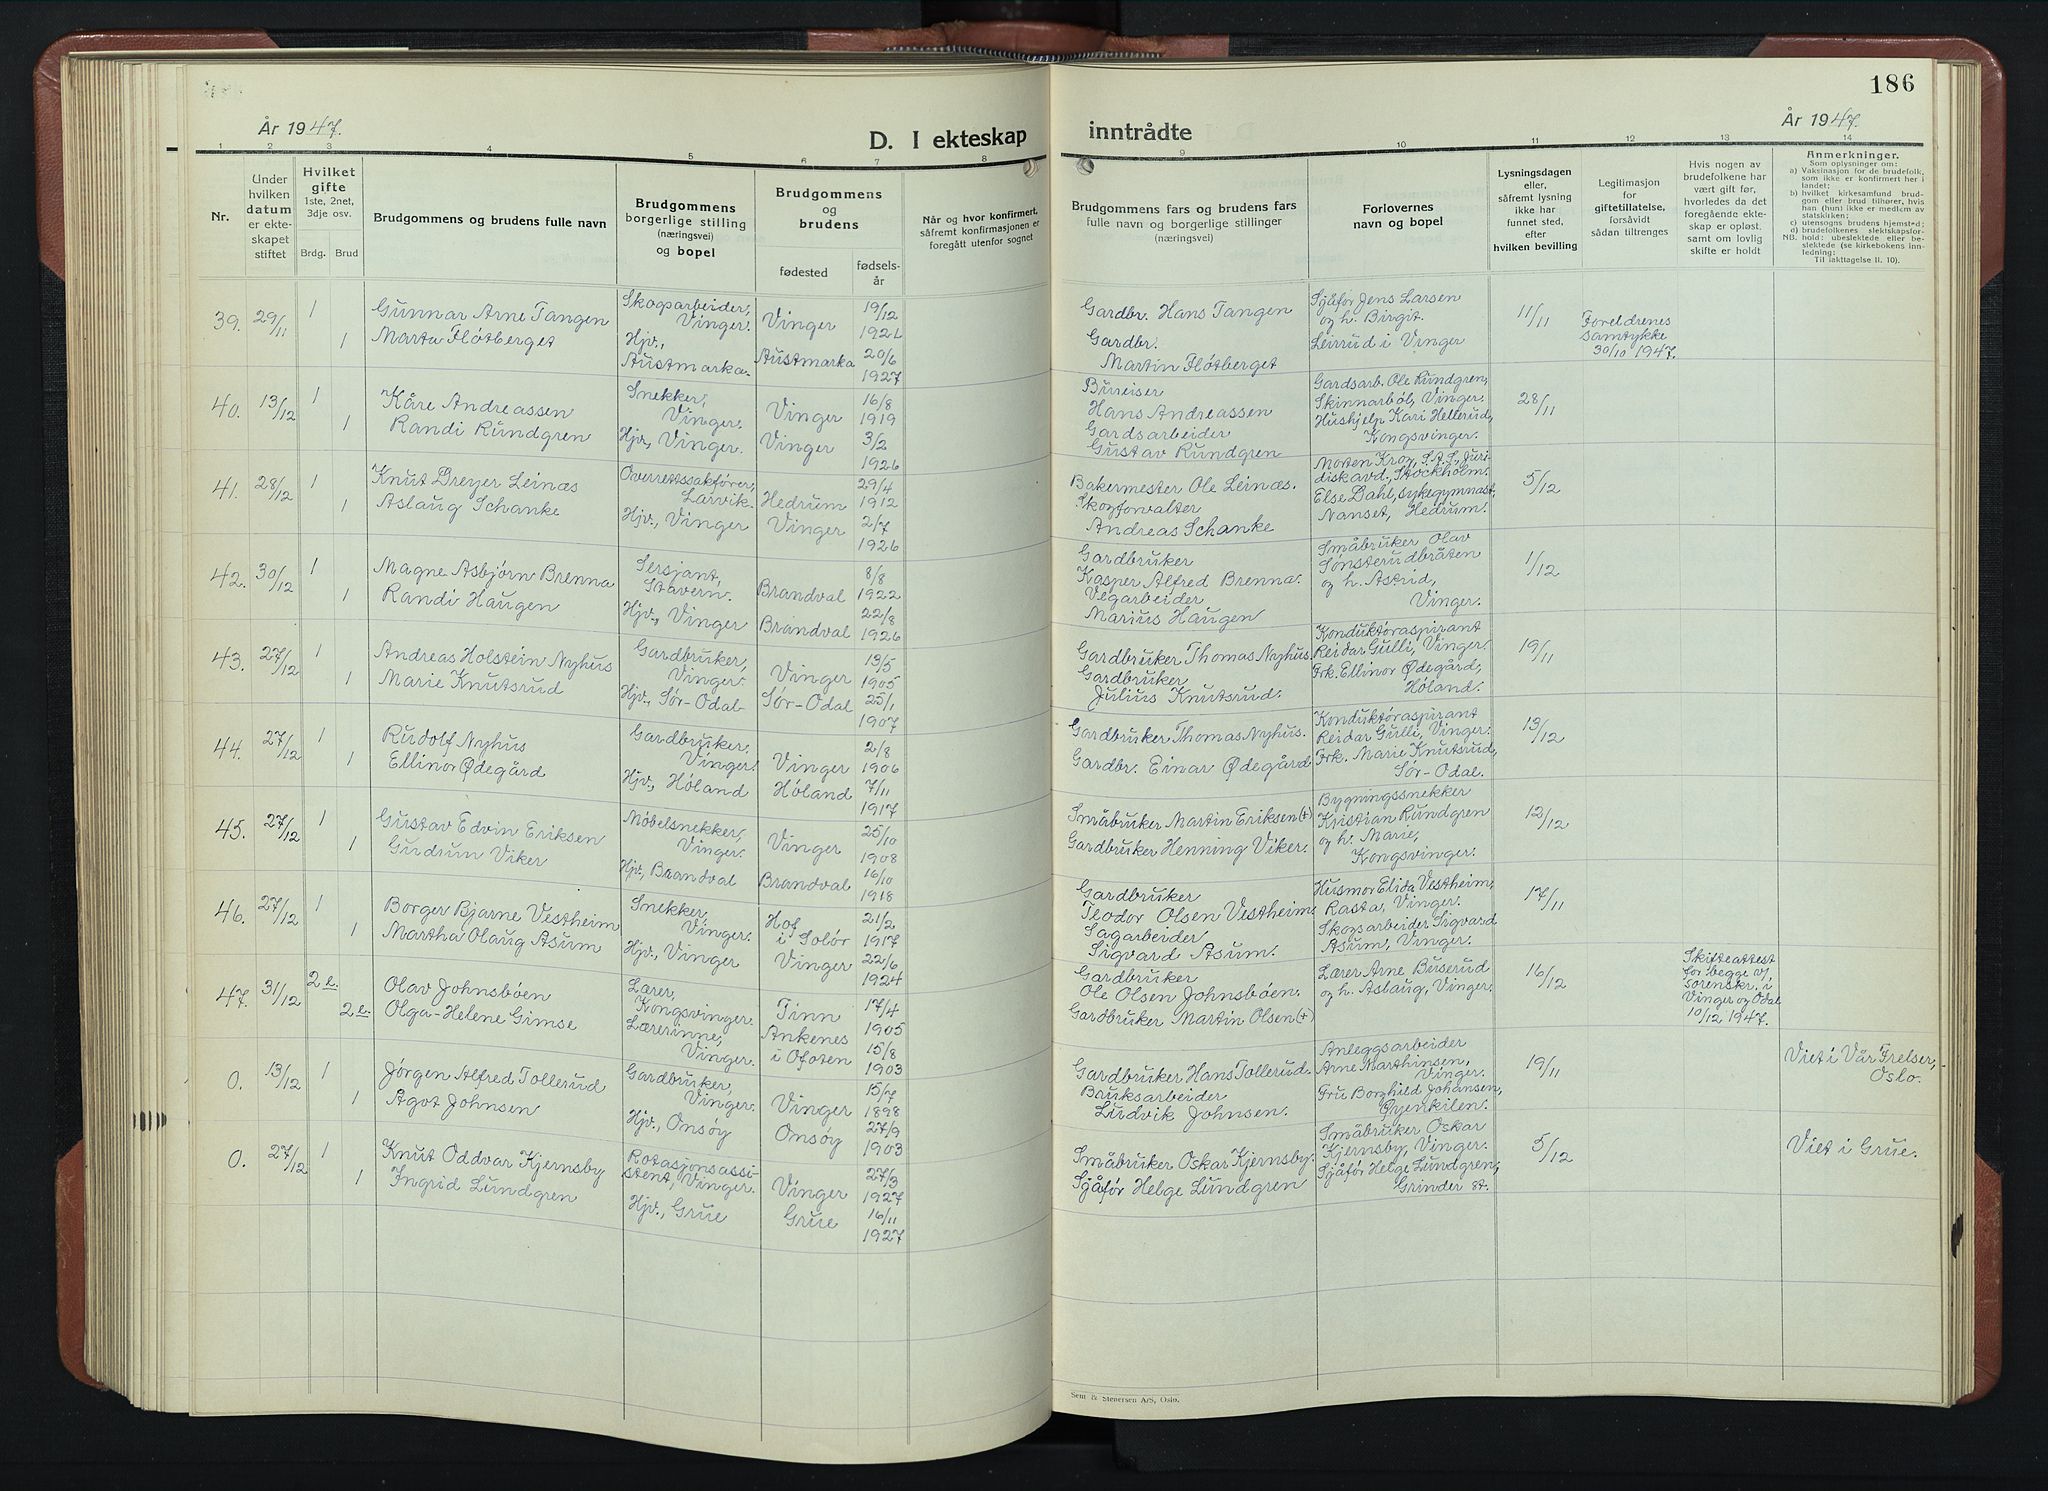 186
År 1947.
D. I ekteskap inntrådte
År 1947.
1 2 3 4 5 6 7 8 9 10 11 12 13 14
Nr.
Under hvilken datum er ekteskapet stiftet
Hvilket gifte 1ste, 2net, 3dje osv.
Brdg. Brud
Brudgommens og brudens fulle navn
Brudgommens borgerlige stilling (næringsvei) og bopel
Brudgommens og brudens
fødested
fødselsår
Når og hvor konfirmert, såfremt konfirmasjonen er foregått utenfor sognet
Brudgommens fars og brudens fars fulle navn og borgerlige stillinger (næringsvei)
Forlovernes navn og bopel
Lysningsdagen eller, såfremt lysning ikke har funnet sted, efter hvilken bevilling
Legitimasjon for giftetillatelse, forsåvidt sådan tiltrenges
Hvis nogen av brudefolkene har vært gift før, hvorledes da det foregående ekteskap er opløst, samt om lovlig skifte er holdt
Anmerkninger.
Som oplysninger om:
a) Vaksinasjon for de brudefolk, som ikke er konfirmert her i landet;
b) hvilket kirkesamfund brudgom eller brud tilhører, hvis han (hun) ikke er medlem av statskirken;
c) utensogns brudens hjemsted;
d) brudefolkenes slektskapsforhold: ubeslektede eller beslektede (se kirkebokens innledning;
NB. Til iakttagelse ll. 10).
39. 29/11 1 Gunnar Arne Tangen
1 Marta Fløtberget
Skogsarbeider, Vinger. Vinger 19/12 1921
Hjv., Austmarka. Austmarka 20/6 1927
Gardbr. Hans Tangen
Gardbr. Martin Fløtberget
Sjåfør Jens Larsen og h. Birgit. Leirud i Vinger
11/11
Foreldrenes samtykke 30/10 1947.
40. 13/12 1 Kåre Andreassen
1 Randi Rundgren
Snekker, Vinger. Vinger 16/8 1919
Hjv., Vinger. Vinger 3/2 1926
Bureiser Hans Andreassen
Gardsarbeider Gustav Rundgren
Gardsarb. Ole Rundgren, Skinnarbøl, Vinger.
Hushjelp Kari Hellerud, Kongsvinger.
28/11
41. 28/12 1 Knut Dreyer Leinæs
1 Aslaug Schanke
Overrettssakfører, Larvik. Hedrum 29/4 1912
Hjv., Vinger Vinger 2/7 1926
Bakermester Ole Leinæs.
Skogforvalter Andreas Schanke
Morten Krog, S.A.S, Juridisk avd., Stockholm.
Else Dahl, sykegymnast, Nanset, Hedrum.
5/12
42. 30/12 1 Magne Asbjørn Brenna
1 Randi Haugen
Sersjant, Stavern. Brandval 8/8 1922
Hjv., Vinger Brandval 22/8 1926
Gardbruker Kasper Alfred Brenna.
Vegarbeider Marius Haugen
Småbruker Olav Sønsterudbråten og h. Astrid, Vinger.
1/12
43. 27/12 1 Andreas Holstein Nyhus
1 Marie Knutsrud
Gardbruker, Vinger. Vinger 13/5 1905
Hjv., Sør-Odal Sør-Odal 25/1 1907
Gardbruker Thomas Nyhus.
Gardbruker Julius Knutsrud.
Konduktøraspirant Reidar Gulli, Vinger.
Frk. Ellinor Ødegård, Høland.
19/11
44. 27/12 1 Rudolf Nyhus
1 Ellinor Ødegård
Gardbruker. Vinger. Vinger 2/8 1906
Hjv., Høland Høland 7/11 1917
Gardbruker Thomas Nyhus.
Gardbr. Einar Ødegård
Konduktøraspirant Reidar Gulli, Vinger.
Frk. Marie Knutsrud, Sør-Odal.
13/12
45. 27/12 1 Gustav Edvin Eriksen
1 Gudrun Viker
Møbelsnekker, Vinger. Vinger 25/10 1908
Hjv., Brandval Brandval 16/10 1918
Småbruker Martin Eriksen (+)
Gardbruker Henning Viker.
Bygningssnekker Kristian Rundgren og h. Marie, Kongsvinger.
12/12
46. 27/12 1 Borger Bjarne Vestheim
1 Martha Olaug Asum
Snekker, Vinger. Hof i Solør 21/2 1917
Hjv., Vinger Vinger 22/6 1924
Gardbruker Teodor Olsen Vestheim.
Sagarbeider Sigvard Asum.
Husmor Elida Vestheim, Rasta, Vinger.
Skogsarbeider Sigvard Asum, Vinger.
17/11
47. 31/12 2 e. Olav Johnsbøen
2 e. Olga-Helene Gimse
Lærer, Kongsvinger. Tinn 17/4 1905
Lærerinne, Vinger. Ankenes i Ofoten 15/8 1903
Gardbruker Ole Olsen Johnsbøen.
Gardbruker Martin Olsen (+)
Lærer Arne Buserud og h. Aslaug, Vinger.
16/12
Skifteattest for begge v/ sorenskr. i Vinger og Odal 10/12 1947.
0. 13/12 1 Jørgen Alfred Tollerud
1 Agot Johnsen
Gardbruker, Vinger. Vinger 15/7 1898
Hjv., Onsøy Onsøy 27/9 1903
Gardbruker Hans Tollerud.
Bruksarbeider Ludvik Johnsen.
Anleggsarbeider Arne Marthinsen, Vinger.
Fru Borghild Johansen, Øyenkilen.
19/11
Viet i Vår Frelser, Oslo.
0. 27/12 1 Knut Oddvar Kjernsby
1 Ingrid Lundgren
Rotasjonsassistent, Vinger. Vinger 27/3 1927
Hjv., Grue Grue 16/11 1927
Småbruker Oskar Kjernsby.
Sjåfør Helge Lundgren
Småbruker Oskar Kjernsby, Vinger.
Sjåfør Helge Lundgren, Grinder st.
5/12
Viet i Grue.
Sem & Stenersen A/S, Oslo.